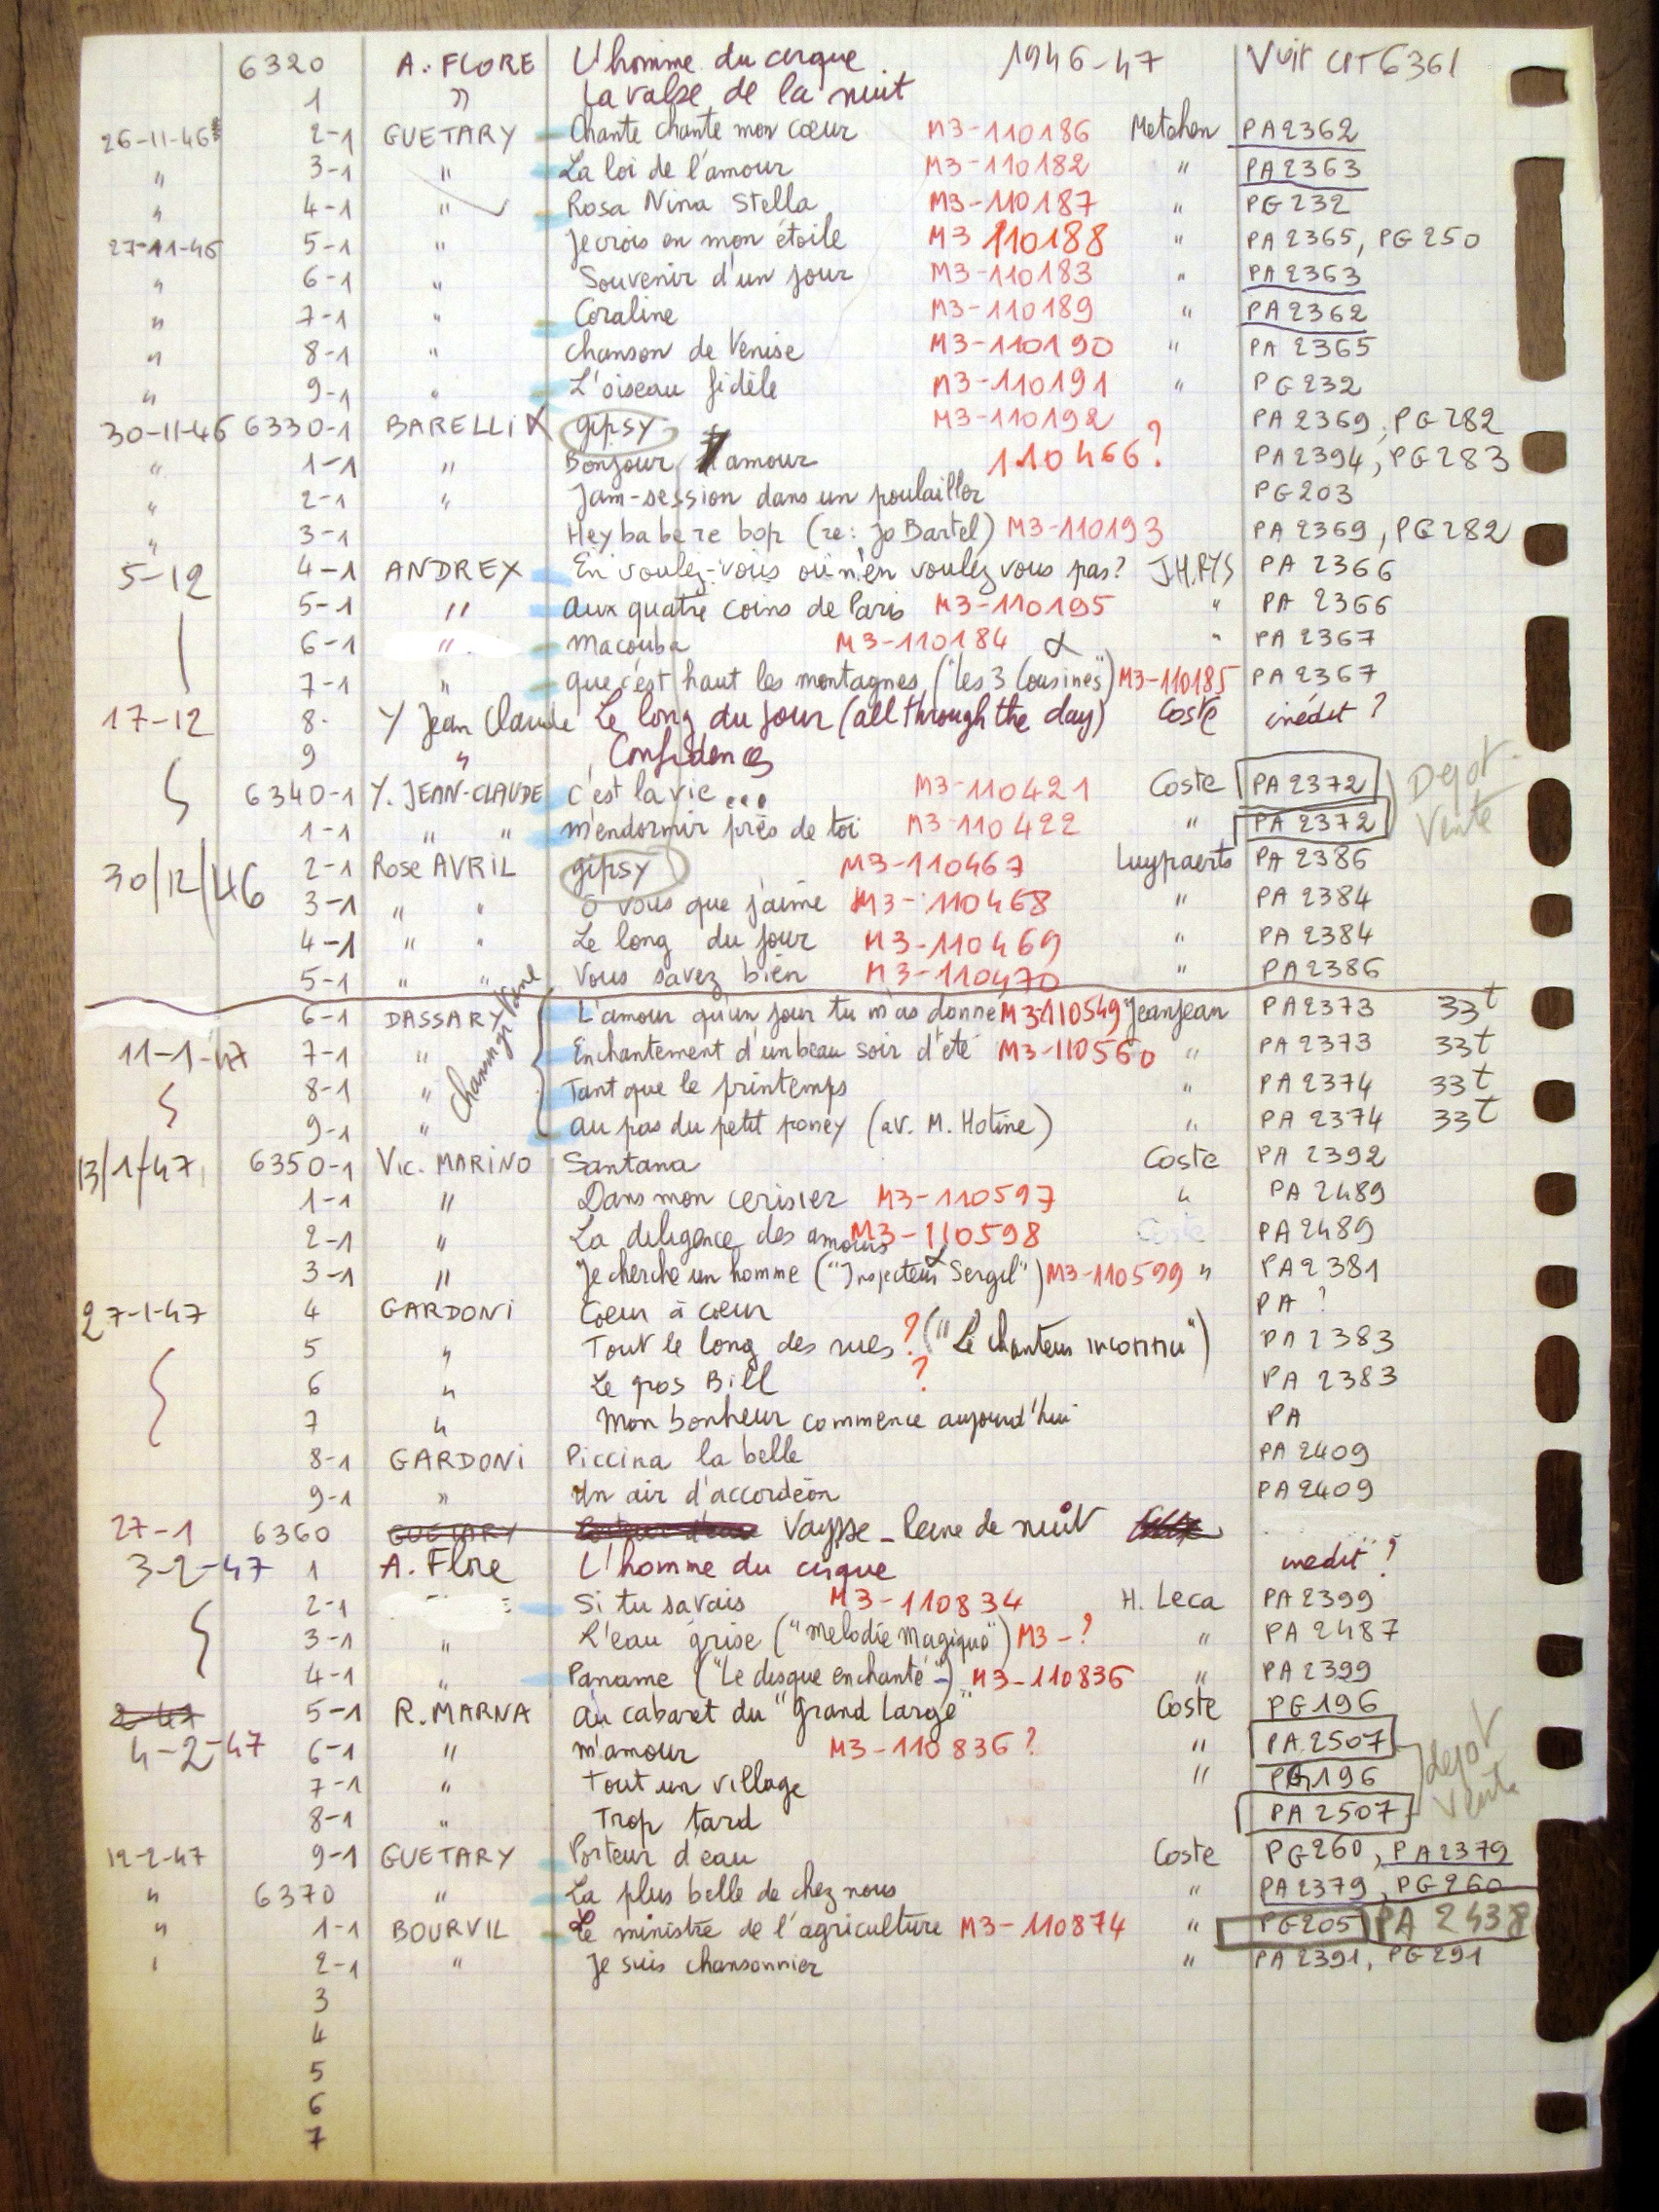 6320 A. FLORE L'homme du cirque 1946-47 Voir CPT6361
1 " La valse de la nuit
26-11-46 2-1 GUETARY Chante chante mon cœur M3-110186 Metehen PA2362
" 3-1 " La loi de l'amour M3-110182 " PA2363
" 4-1 " Rosa Nina Stella M3-110187 " PG232
27-11-46 5-1 " Je crois en mon étoile M3 110188 " PA2365, PG250
" 6-1 " Souvenir d'un jour M3-110183 " PA2363
" 7-1 " Coraline M3-110189 " PA2362
" 8-1 " chanson de Venise M3-110190 " PA 2365
" 9-1 " L'oiseau fidèle M3-110191 " PG232
30-11-46 6330-1 BARELLI X gipsy M3-110192 PA2369, PG282
" 1-1 " Bonjour l'amour 110466? PA2394, PG283
" 2-1 " Jam-session dans un poulailler PG203
" 3-1 Hey baba re bop (re: Jo Bartel) M3-110193 PA2369, PG282
5-12 4-1 ANDREX En voulez-vous ou n'en voulez vous pas? J.H.RYS PA 2366
5-1 " aux quatre coins de Paris M3-110195 " PA 2366
6-1 " macouba M3-110184 " PA 2367
7-1 " que c'est haut les montagnes ("les 3 Cousines") M3-110185 PA2367
17-12 8- Y Jean Claude Le long du jour (all through the day) Coste inédit ?
9 " Confidences
6340-1 Y. JEAN-CLAUDE c'est la vie... M3-110421 Coste PA2372 Depot-
1-1 " " m'endormir près de toi M3-110422 " PA 2372 Vente
30/12/46 2-1 Rose AVRIL gipsy M3-110467 Luypaerts PA 2386
3-1 " " O vous que j'aime M3-110468 " PA 2384
4-1 " " Le long du jour M3-110469 " PA 2384
5-1 " " Vous savez bien M3-110470 " PA2386
6-1 DASSARY L'amour qu'un jour tu m'as donné M3-110549 Jeanjean PA2373 33t
11-1-47 7-1 " Enchantement d'un beau soir d'été M3-110560 " PA2373 33t
8-1 " Tant que le printemps " PA2374 33t
9-1 " au pas du petit poney (av. M. Hotine) " PA 2374 33t
13/1/47 6350-1 Vic. MARINO Santana Coste PA 2392
1-1 " Dans mon cerisier M3-110597 " PA 2489
2-1 " La diligence des amours M3-110598 Coste PA2489
3-1 " "Je cherche un homme ("Inspecteur Sergil") M3-110599 " PA2381
27-1-47 4 GARDONI Coeur à coeur PA ?
5 " Tout le long des rues ? ("Le chanteur inconnu") PA 2383
6 " Le gros Bill ? PA 2383
7 " Mon bonheur commence aujourd'hui PA
8-1 GARDONI Piccina la belle PA 2409
9-1 " Un air d'accordéon PA2409
27-1 6360 GUETARY Vaysse - Reine de nuit
3-2-47 1 A. Flore L'homme du cirque inédit ?
2-1 Si tu savais M3-110834 H. Leca PA2399
3-1 " L'eau grise ("Melodie Magique") M3-? " PA 2487
4-1 " Paname ("Le disque enchanté") M3-110836 " PA2399
2-47 5-1 R. MARNA au cabaret du "Grand large" Coste PG196
4-2-47 6-1 " m'amour M3-110836? " PA.2507 depot
7-1 " Tout un village " PG196 Vente
8-1 " Trop tard PA2507
12-2-47 9-1 GUETARY Porteur d'eau Coste PG260, PA2379
" 6370 " La plus belle de chez nous " PA2379, PG260
" 1-1 BOURVIL Le ministre de l'agriculture M3-110874 " PG205 PA 2438
' 2-1 " Je suis chansonnier " PA2391, PG291
3
4
5
6
7